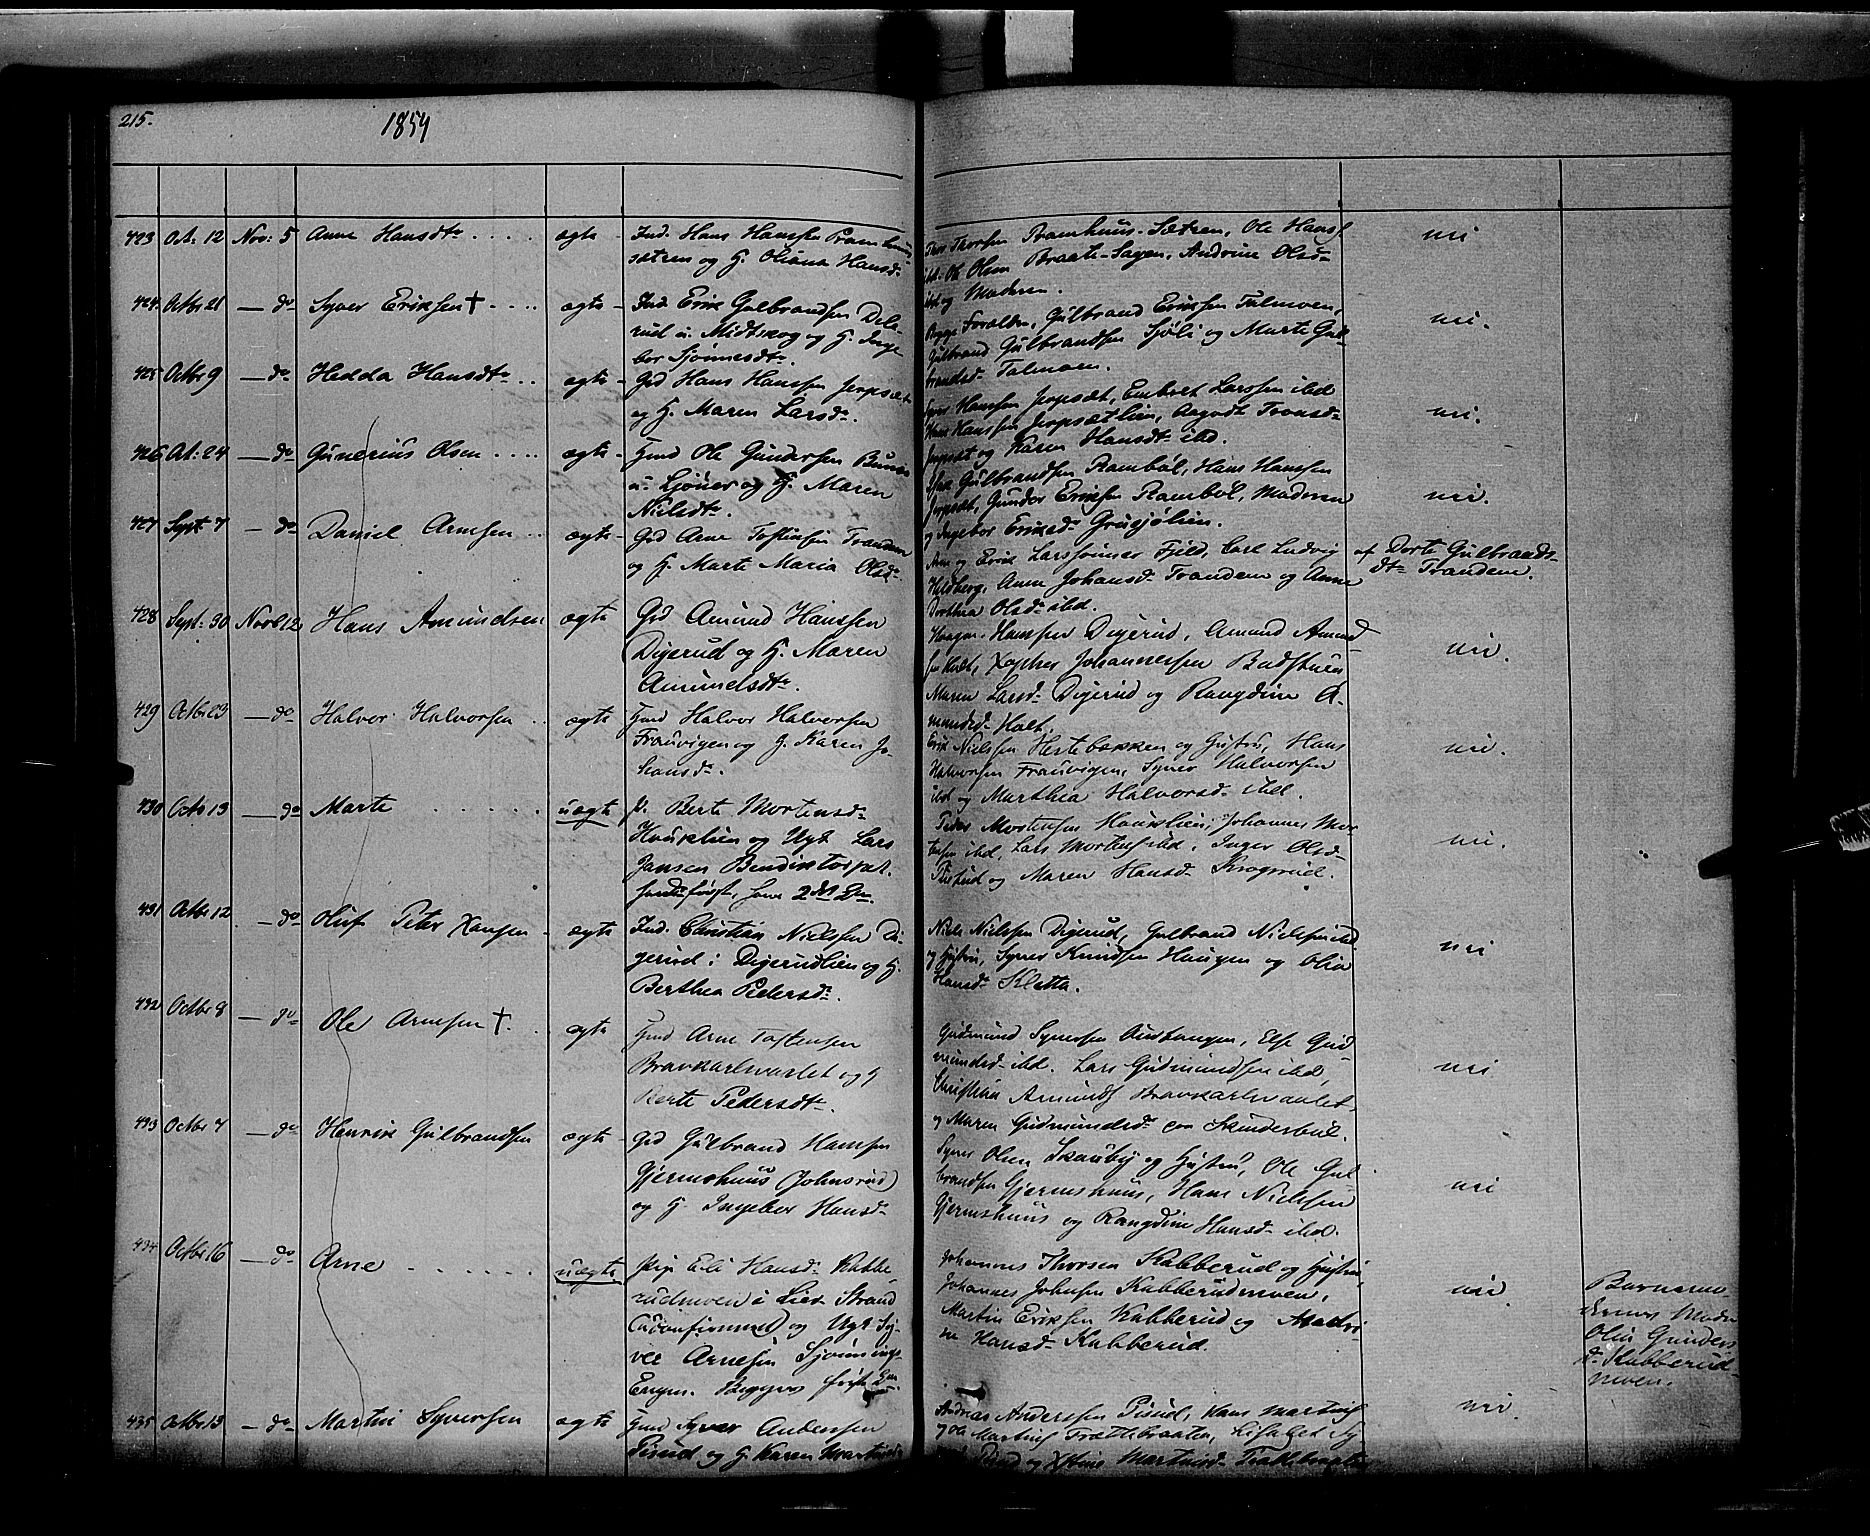 215.
1854
423 Oct. 12 Nov: 5 Anne Hansdtr .... ægte - Ind. Hans Hansen Pramhuus
sætren og H. Oliana Hansdr
Thor Thorsen Pramhuus-Sætren, Ole Hans
ibd. Ole Olsen Braate-Sagen, Andrine Olsd-
ibd og Moderen.
nei
424. Octbr 21 — do Syver Eriksen † .... ægte - Ind. Erik Gulbrandsen
rud u. Midtskog og H. Inge
bor Sjønnesdtr
Begge Forældre, Gulbrand Eriksen Talmoen,
Gulbrand Gulbrandsen Sjøli og Marte Gul-
brandsd. Talmoen.
nei.
425 Octbr 9 — do Hedda Hansdtr .. ægte - Grd Hans Hansen Jerpsæt
og H. Maren Larsdr.
Syver Hansen Jerpsæt, Embret Larssen ibd
Hans Hanssen Jerpsætlien, Aagodt Tronsd-
Jerpsæt og Karen Hansdtr ibd.
nei.
426 Oct. 24 — do Gunerius Olsen .... ægte - Hmd Ole Gundersen
u. Sjøner og H. Maren
Nielsdtr.
Gulbrandsen Rambøl, Hans Hanssen
Jerpsæt, Gunder Eriksen Rambøl, Moderen
og Ingebor Eriksd- Gruesjølien.
nei.
427 Sept 7 — do Daniel Arnesen .. ægte - Grd Arne Tostensen Tranden
og H. Marte Maria Olsdr
Arne og Erik Larssønner Fjeld, Carl Ludvig
Hildberg, Anne Johansd- Trandem og Anne
Dorthea Olsdr ibd.
af Dorte Gulbrands-
dtr Trandem.
428 Sept. 30 Novbr 12 Hans Amundsen ægte Grd Amund Hanssen
Digerud og H. Maren
Amundsdtr.
Haagen Hanssen Digerud, Amund Amund-
sen Holt, Johannessen Badstuen
Maren Larsd- Digerud og Rangdine A-
mundsd- Holt.
nei.
429 Octbr 23 — do Halvor Halvorsen .. ægte Hmd Halvor Halvorsen
Frauvigen og H. Karen Jo-
hansdr.
Erik Nielssen Hertebakken og Hustru, Hans
Halvorsen Frauvigen, Syver Halvorsen
ibd og Marthea Halvorsd- ibd.
nei.
430 Octb 13 — do Marte ...... uægte P. Berte Mortensdr
Houglien og Ugk Lars
Jansen
hendes første, hans 2det
Peder Mortensen Houglien, Johannes Mor-
tensen ibd, Lars Mortensen ibd. Inger Olsd-
og Maren Hansd- Krogsrud.
nei.
431 Octbr 12 — do Oluf Peter Hansen - ægte Ind. Christian Nielssen Di-
gerud i Digerudlien og H.
Berthea Pedersdr.
Niels Nielssen Digerud, Gulbrand Nielsen ibd
og Hustru, Syver Knudsen Haugen og Olia
Hansdr Kletta.
nei
432 Octbr 8 — do Ole Arnesen † ... ægte Hmd Arne Tostensen
Bravkarlvarlet og H
Berte Pedersdtr.
Gudmund Syversen Austangen, Else Gud-
mundsd- ibd. Lars Gudmundsen ibd,
Christian Amunds Bravkarlvarlet
og Maren Gudmundsdr paa Skinderbøl.
nei
433 Octbr 7 — do Henrik Gulbrandsen ægte - Grd Gulbrand Hansen
Gjermshuus (Johnsrud)
og H. Ingebor Hansdr
Syver Olsen Skarby og Hustru, Ole Gul-
brandsen Gjermshuus, Hans Nielssen
Gjermshuus og Rangdine Hansd- ibd.
nei
434 Octbr 16 — do Arne ...... uægte Pige Eli Hansdr Kabbe
rudmoen i Lier Strand
og Ugk Sy-
ver Arnesen Sjønnings-
Engen. Begges første
Johannes Thorsen Kabberud og Hustru,
Johannes Johnsen Kabberudmoen,
Martin Eriksen Kabberud og
Hansdr Kabberud.
nei
Olia Gunders
dr Kabberud
moen.
435 Octbr 13 — do Martin Syversen ægte Hmd Syver Andersen
Pisrud og H. Karen Martinsdr
Andreas Andersen Pisrud, Hans Martins
Martins Træthbraaten, Lisabet Sy
og Stine Martinsd- Træthbraaten
nei.